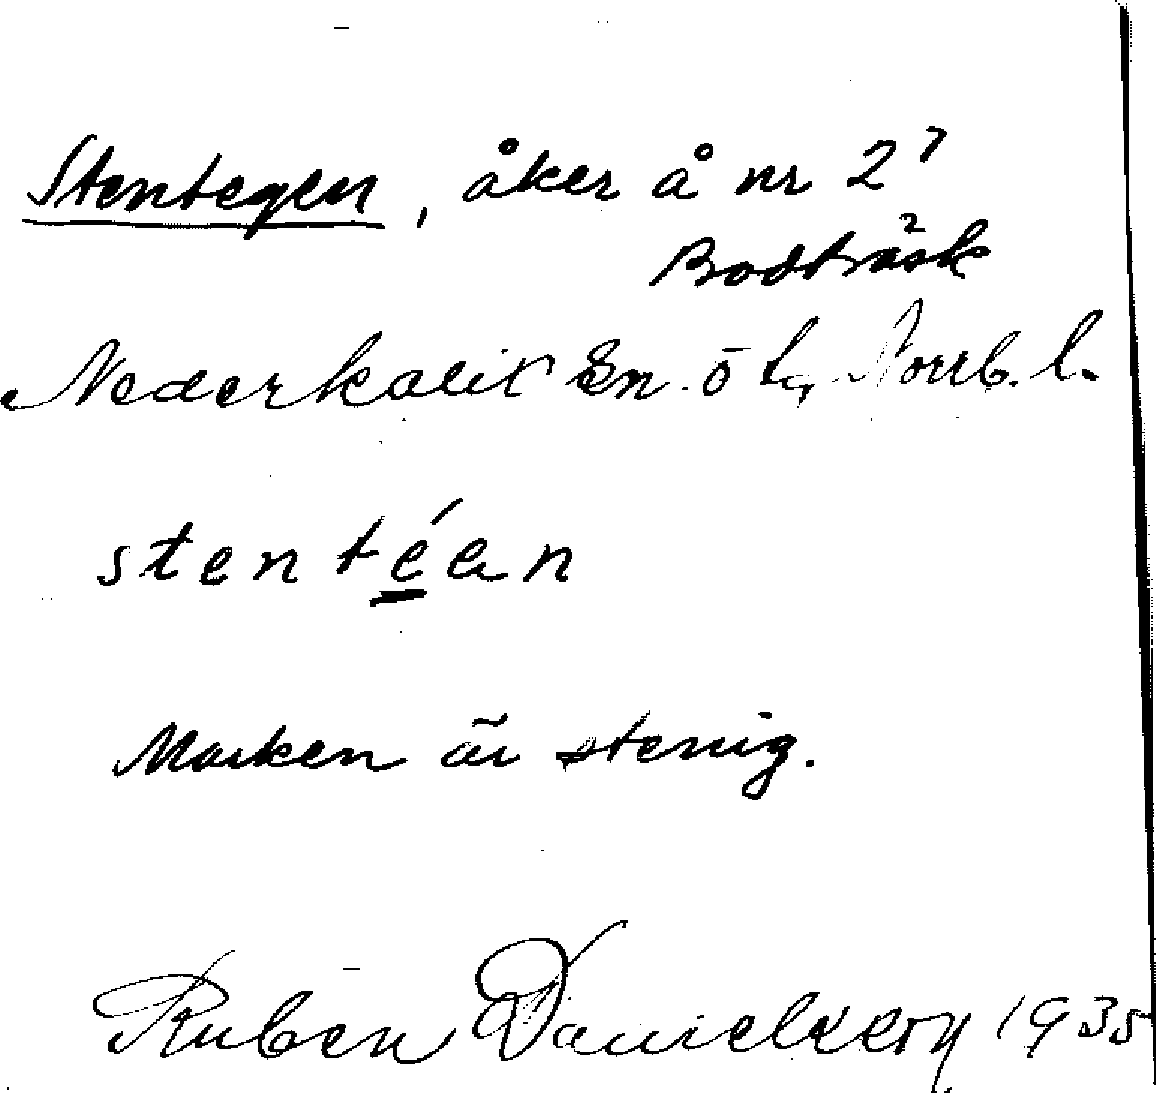 Stentegen, åker å nr 2⁷
Bodträsk
Nederkalix sn. ö lg Norrb. l.
stentéan
Marken är stenig.
Ruben Danielsson 1935